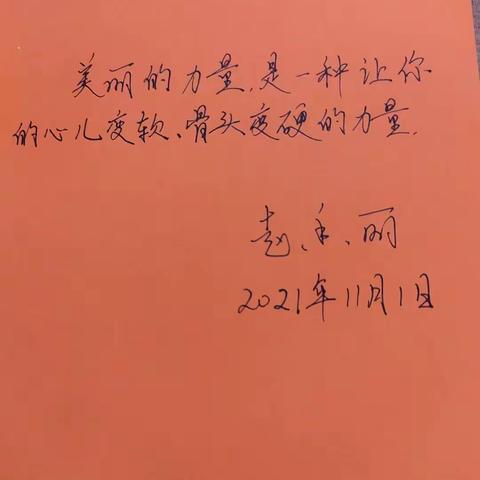 美丽的力量,是一种让你
的心儿变软、骨头变硬的力量.
赵、香、丽
2021年11月1日